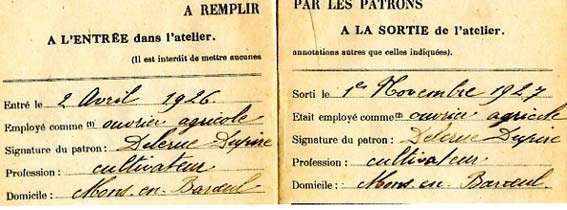 A REMPLIR
A L'ENTRÉE dans l'atelier.
(Il est interdit de mettre aucunes
Entré le 2 Avril 1926
Employé comme (1) ouvrier agricole
Signature du patron : Delerue Dupire
Profession : cultivateur
Domicile : Mons. en. Baroeul
PAR LES PATRONS
A LA SORTIE de l'atelier.
annotations autres que celles indiquées).
Sorti le 1er Novembre 1927
Etait employé comme (1) ouvrier agricole
Signature du patron : Delerue Dupire
Profession : cultivateur
Domicile : Mons. en. Baroeul.